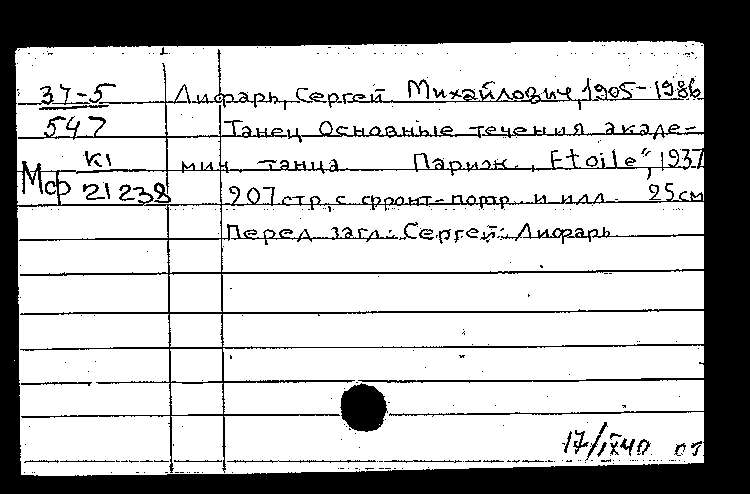 37-5
547
К1
Мсф 21238
Лифарь, Сергей Михайлович, 1905-1986
Танец Основные течения акаде-
мич. танца Париж. „Etoile“, 1937
207 стр., с фронт-портр. и илл 25 см
Перед загл.: Сергей Лифарь
17/IX 40